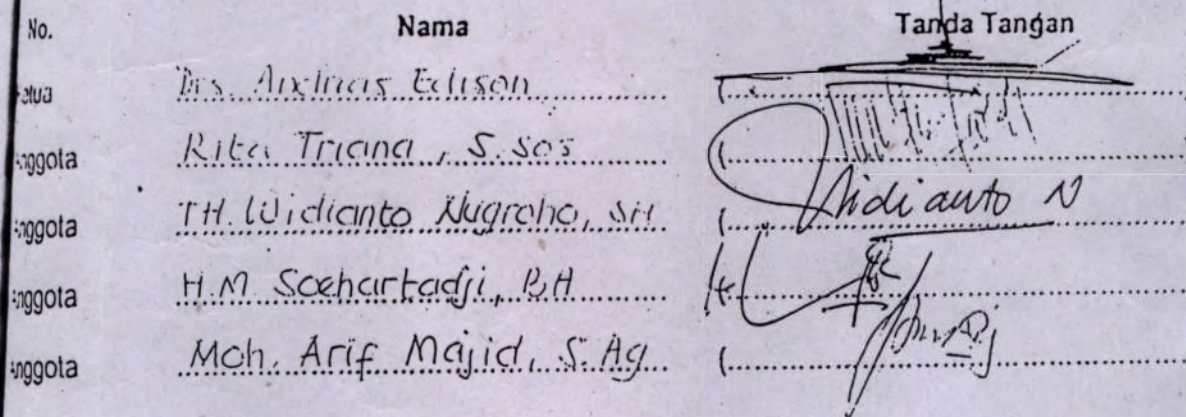 No. Nama Tanda Tangan
etua Drs. Andrias Edison
Anggota Rita Triana, S.Sos
Anggota TH. Widianto Nugroho, SH Widianto N
Anggota H.M Soehartadji, B,H
Anggota Moh. Arif Majid, S.Ag